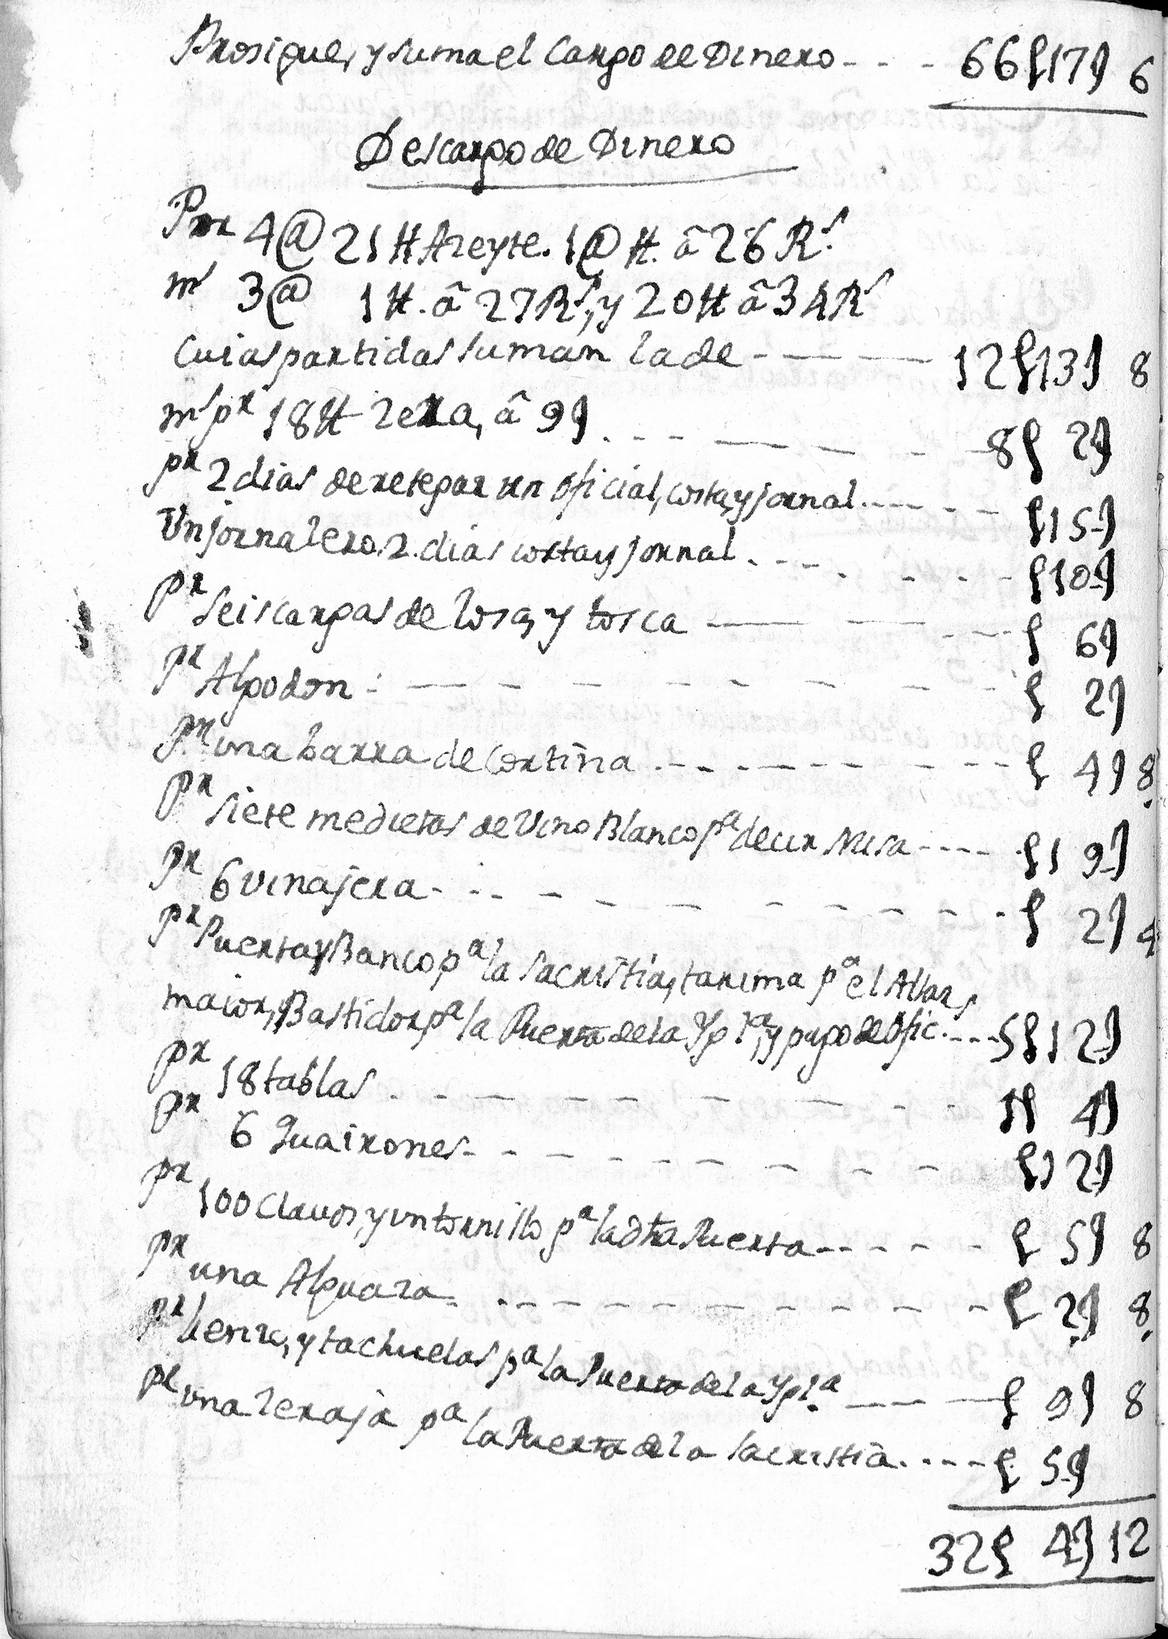 Prosigue, y suma el Cargo de Dinero - - - 66 £ 17 s 6
Descargo de Dinero
Pr 4@ 21 tt Azeyte. 1@ tt. â 26 Rs.
ms 3@ 1 tt. â 27 Rs, y 20 tt â 34 Rs
Cuias partidas suman la de - - - 12 £ 13 s 8
ms pr 18 tt zera, â 9 s - - - 8 £ 2 s
pr 2 dias de retejar un oficial, costa, y jornal - - - £ 15 s
Un jornalero, 2. dias costa y jornal - - - £ 10 s
Pr Seis cargas de losa, y tosca - - - £ 6 s
Pr Algodon - - - £ 2 s
Pr una barra de Cortina - - - £ 4 s 8
Pr siete medietas de Vino Blanco pa decir Misa - - - £ 19 s
Pr 6 vinajera - - - £ 2 s 4
Pr Puerta y Banco, pa la Sacristia, tarima pa el Altar
maior, Bastidor pa la Puerta de la Ygla, y pago de Ofics. - - - 5 £ 12 s
pr 18 tablas - - - 4 s
pr 6 Quairones - - - £ 12 s
pr 100 Clavos, y un tornillo pa la dha Puerta - - - £ 5 s 8
pr una Alguaza - - - £ 2 s 8
Pr lienzo, y tachuelas pa la Puerta de la Ygla - - - £ 9 s 8
pr una zeraja pa la Puerta de la Sacristia - - - £ 5 s
32 £ 4 s 12